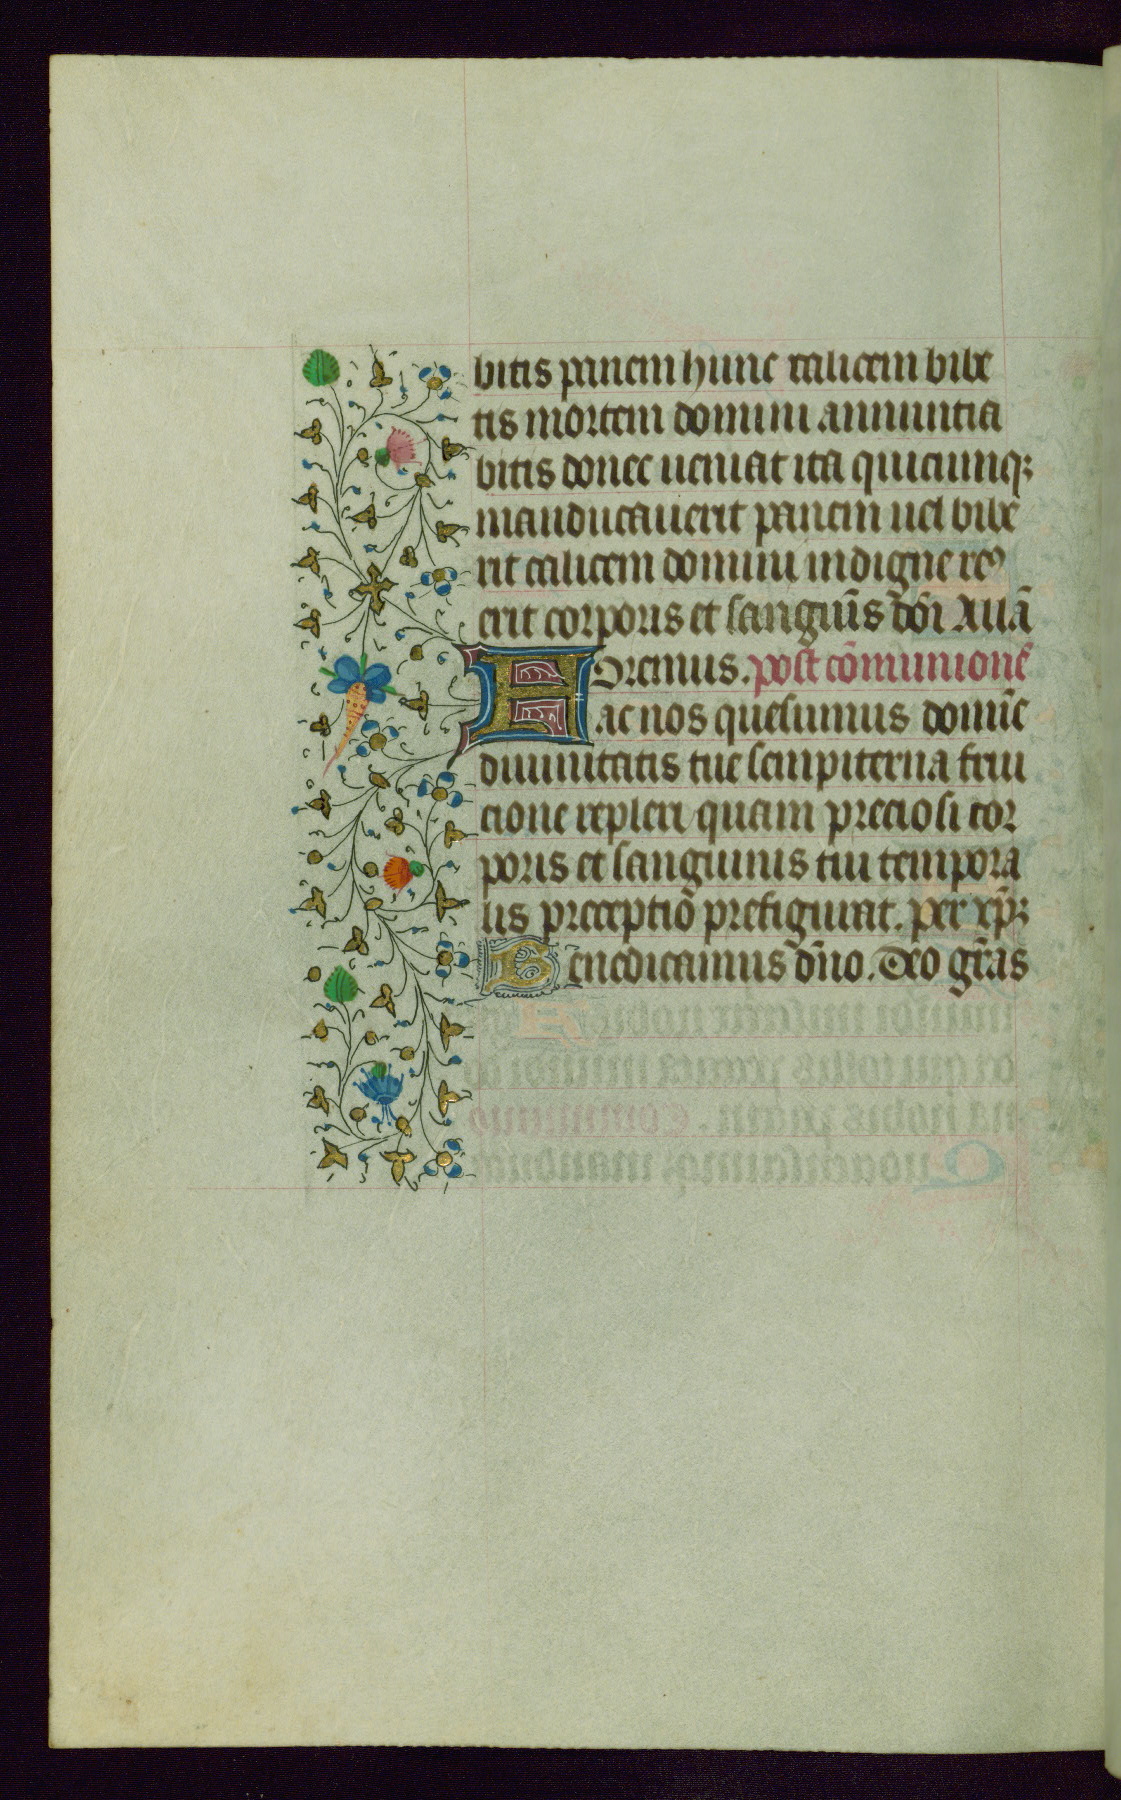 bitis panem hunc calicem bibe
tis mortem domini annuntia
bitis donec ueniat ita quicunqꝫ
manducauerit panem uel bibe
rit calicem domini indigne re
erit corporis et sanguīs dn̄i All̄a
Oremus. post cōmunionē
Fac nos quesumus domīe
diuinitatis tue sempiterna frui
cione repleri quam preciosi cor
poris et sanguinis tui tempora
lis preceptiō prefigurat. per xp̄ꝫ
Benedicamus dn̄o. Deo gr̄as